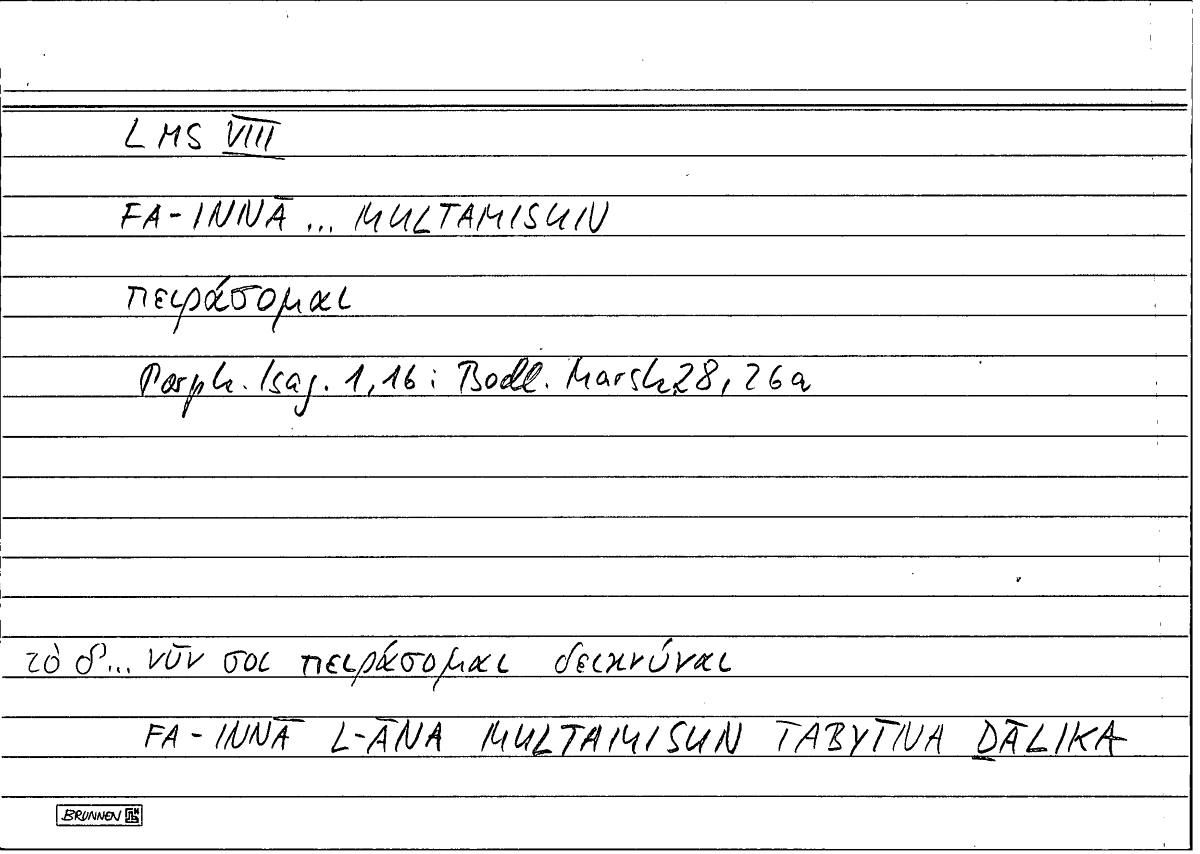 LMS VIII
FA-INNĀ ... MULTAMISUN
πειράσομαι
Porph. Isag. 1,16: Bodl. Marsh 28, 26a
τὸ δ'... νῦν σοι πειράσομαι δεικνύναι
FA-INNĀ L-ĀNA MULTAMISUN TABYĪNA ḎĀLIKA
BRUNNEN